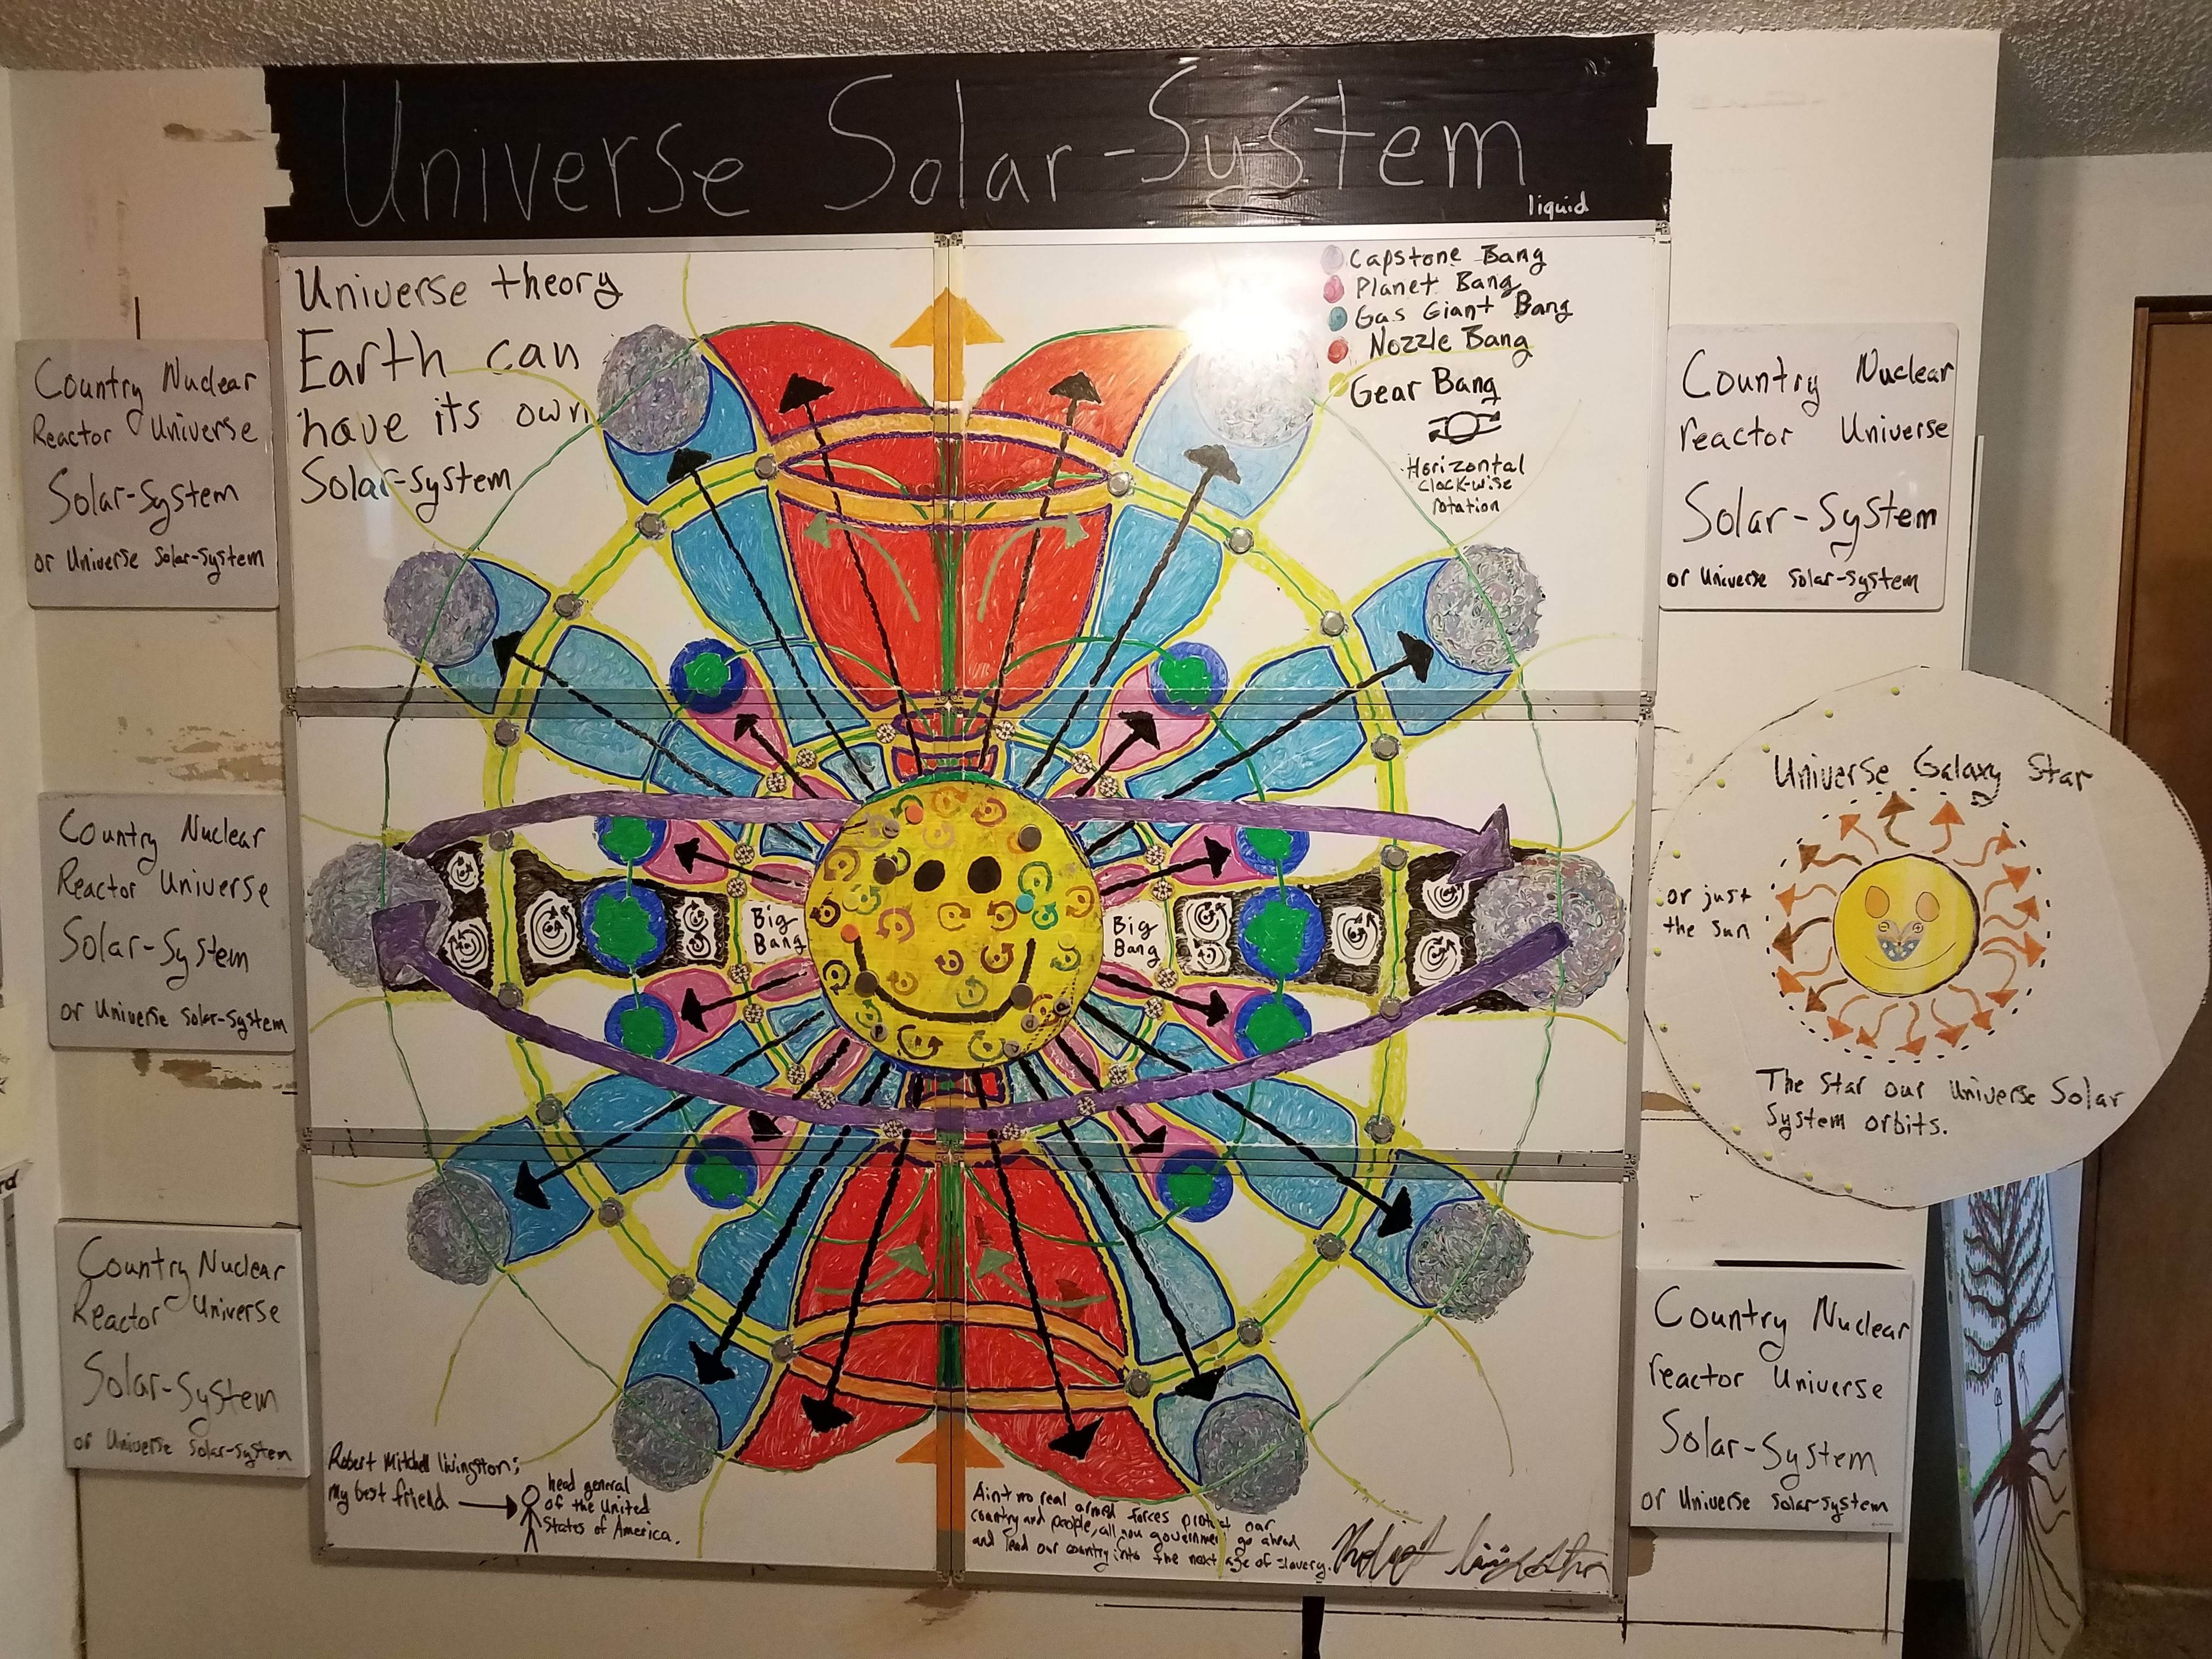 Universe Solar-System
liquid
Universe theory
Earth can
have its own
Solar-system
Capstone Bang
Planet Bang
Gas Giant Bang
Nozzle Bang
Gear Bang
Horizontal
Clock-wise
rotation
Country Nuclear
Reactor Universe
Solar-System
or Universe Solar-system
Country Nuclear
Reactor Universe
Solar-System
or Universe Solar-system
Country Nuclear
Reactor Universe
Solar-System
or Universe Solar-system
Big
Bang
Big
Bang
Country Nuclear
reactor Universe
Solar-System
or Universe Solar-system
Universe Galaxy Star
or just
the sun
The Star our Universe Solar
System orbits.
Country Nuclear
reactor Universe
Solar-System
or Universe Solar-system
Robert Mitchell Livingston;
my best friend
head general
of the United
States of America.
Aint no real armed forces protect our
country and people, all you government go ahead
and lead our country into the next age of slavery.
rd